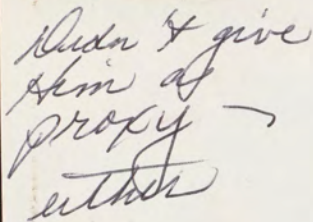 Didn't give
him a
proxy -
either